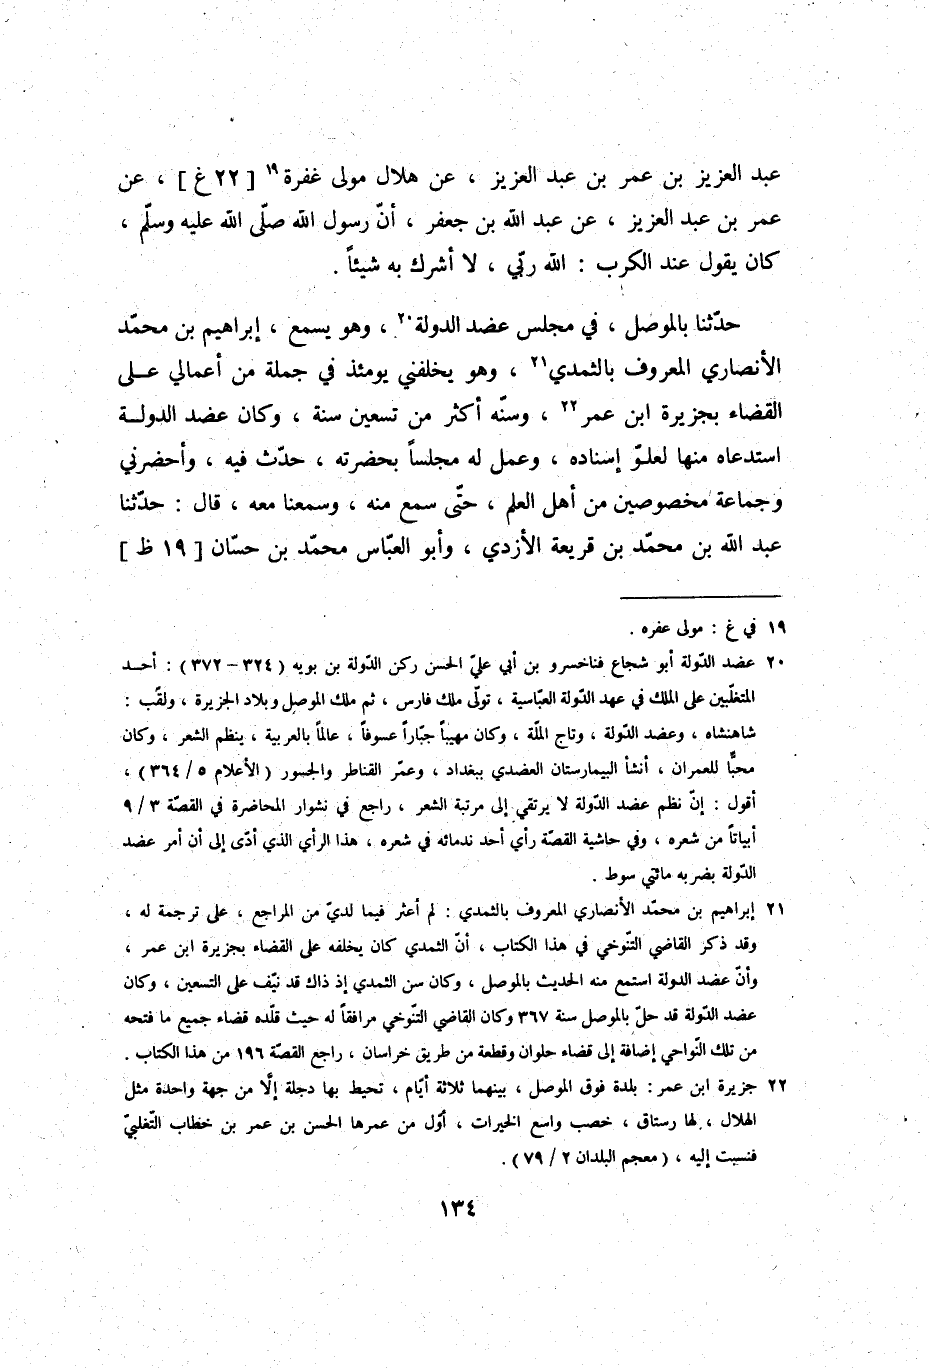 عبد العزيز بن عمر بن عبد العزيز ، عن هلال مولى غفرة١٩ [ ٢٢ غ ] ، عن
عمر بن عبد العزيز ، عن عبد الله بن جعفر ، أنّ رسول الله صلّى الله عليه وسلّم ،
كان يقول عند الكرب : الله ربّي ، لا أشرك به شيئاً .
حدّثنا بالموصل ، في مجلس عضد الدولة٢٠ ، وهو يسمع ، إبراهيم بن محمّد
الأنصاري المعروف بالثمدي٢١ ، وهو يخلفني يومئذ في جملة من أعمالي عـلى
القضاء بجزيرة ابن عمر٢٢ ، وسنّه أكثر من تسعين سنة ، وكان عضد الدولـة
استدعاه منها لعلوّ إسناده ، وعمل له مجلساً بحضرته ، حدّث فيه ، وأحضرني
وجماعة مخصوصين من أهل العلم ، حتّى سمع منه ، وسمعنا معه ، قال : حدّثنا
عبد الله بن محمّد بن قريعة الأزدي ، وأبو العبّاس محمّد بن حسّان [ ١٩ ظ ]
١٩ في غ : مولى عفره .
٢٠ عضد الدّولة أبو شجاع فناخسرو بن أبي عليّ الحسن ركن الدّولة بن بويه ( ٣٢٤ – ٣٧٢ ) : أحـد
المتغلّبين على الملك في عهد الدّولة العبّاسية ، تولّى ملك فارس ، ثم ملك الموصل وبلاد الجزيرة ، ولقّب :
شاهنشاه ، وعضد الدّولة ، وتاج الملّة ، وكان مهيباً جبّاراً عسوفاً ، عالماً بالعربية ، ينظم الشعر ، وكان
محبًّا للعمران ، أنشأ البيمارستان العضدي ببغداد ، وعمّر القناطر والجسور ( الأعلام ٥ / ٣٦٤ ) ،
أقول : إنّ نظم عضد الدّولة لا يرتقي إلى مرتبة الشعر ، راجع في نشوار المحاضرة في القصّة ٣ / ٩
أبياتاً من شعره ، وفي حاشية القصّة رأي أحد ندمائه في شعره ، هذا الرأي الذي أدّى إلى أن أمر عضد
الدّولة بضربه مائتي سوط .
٢١ إبراهيم بن محمّد الأنصاري المعروف بالثمدي : لم أعثر فيما لديّ من المراجع ، على ترجمة له ،
وقد ذكر القاضي التّنوخي في هذا الكتاب ، أنّ الثمدي كان يخلفه على القضاء بجزيرة ابن عمر ،
وأنّ عضد الدولة استمع منه الحديث بالموصل ، وكان سن الثمدي إذ ذاك قد نيّف على التسعين ، وكان
عضد الدّولة قد حلّ بالموصل سنة ٣٦٧ وكان القاضي التّنوخي مرافقاً له حيث قلّده قضاء جميع ما فتحه
من تلك النّواحي إضافة إلى قضاء حلوان وقطعة من طريق خراسان ، راجع القصّة ١٩٦ من هذا الكتاب .
٢٢ جزيرة ابن عمر : بلدة فوق الموصل ، بينهما ثلاثة أيّام ، تحيط بها دجلة إلّا من جهة واحدة مثل
الهلال ، لها رستاق ، خصب واسع الخيرات ، أوّل من عمرها الحسن بن عمر بن خطاب التّغلبيّ
فنسبت إليه ، ( معجم البلدان ٢ / ٧٩ ) .
١٣٤